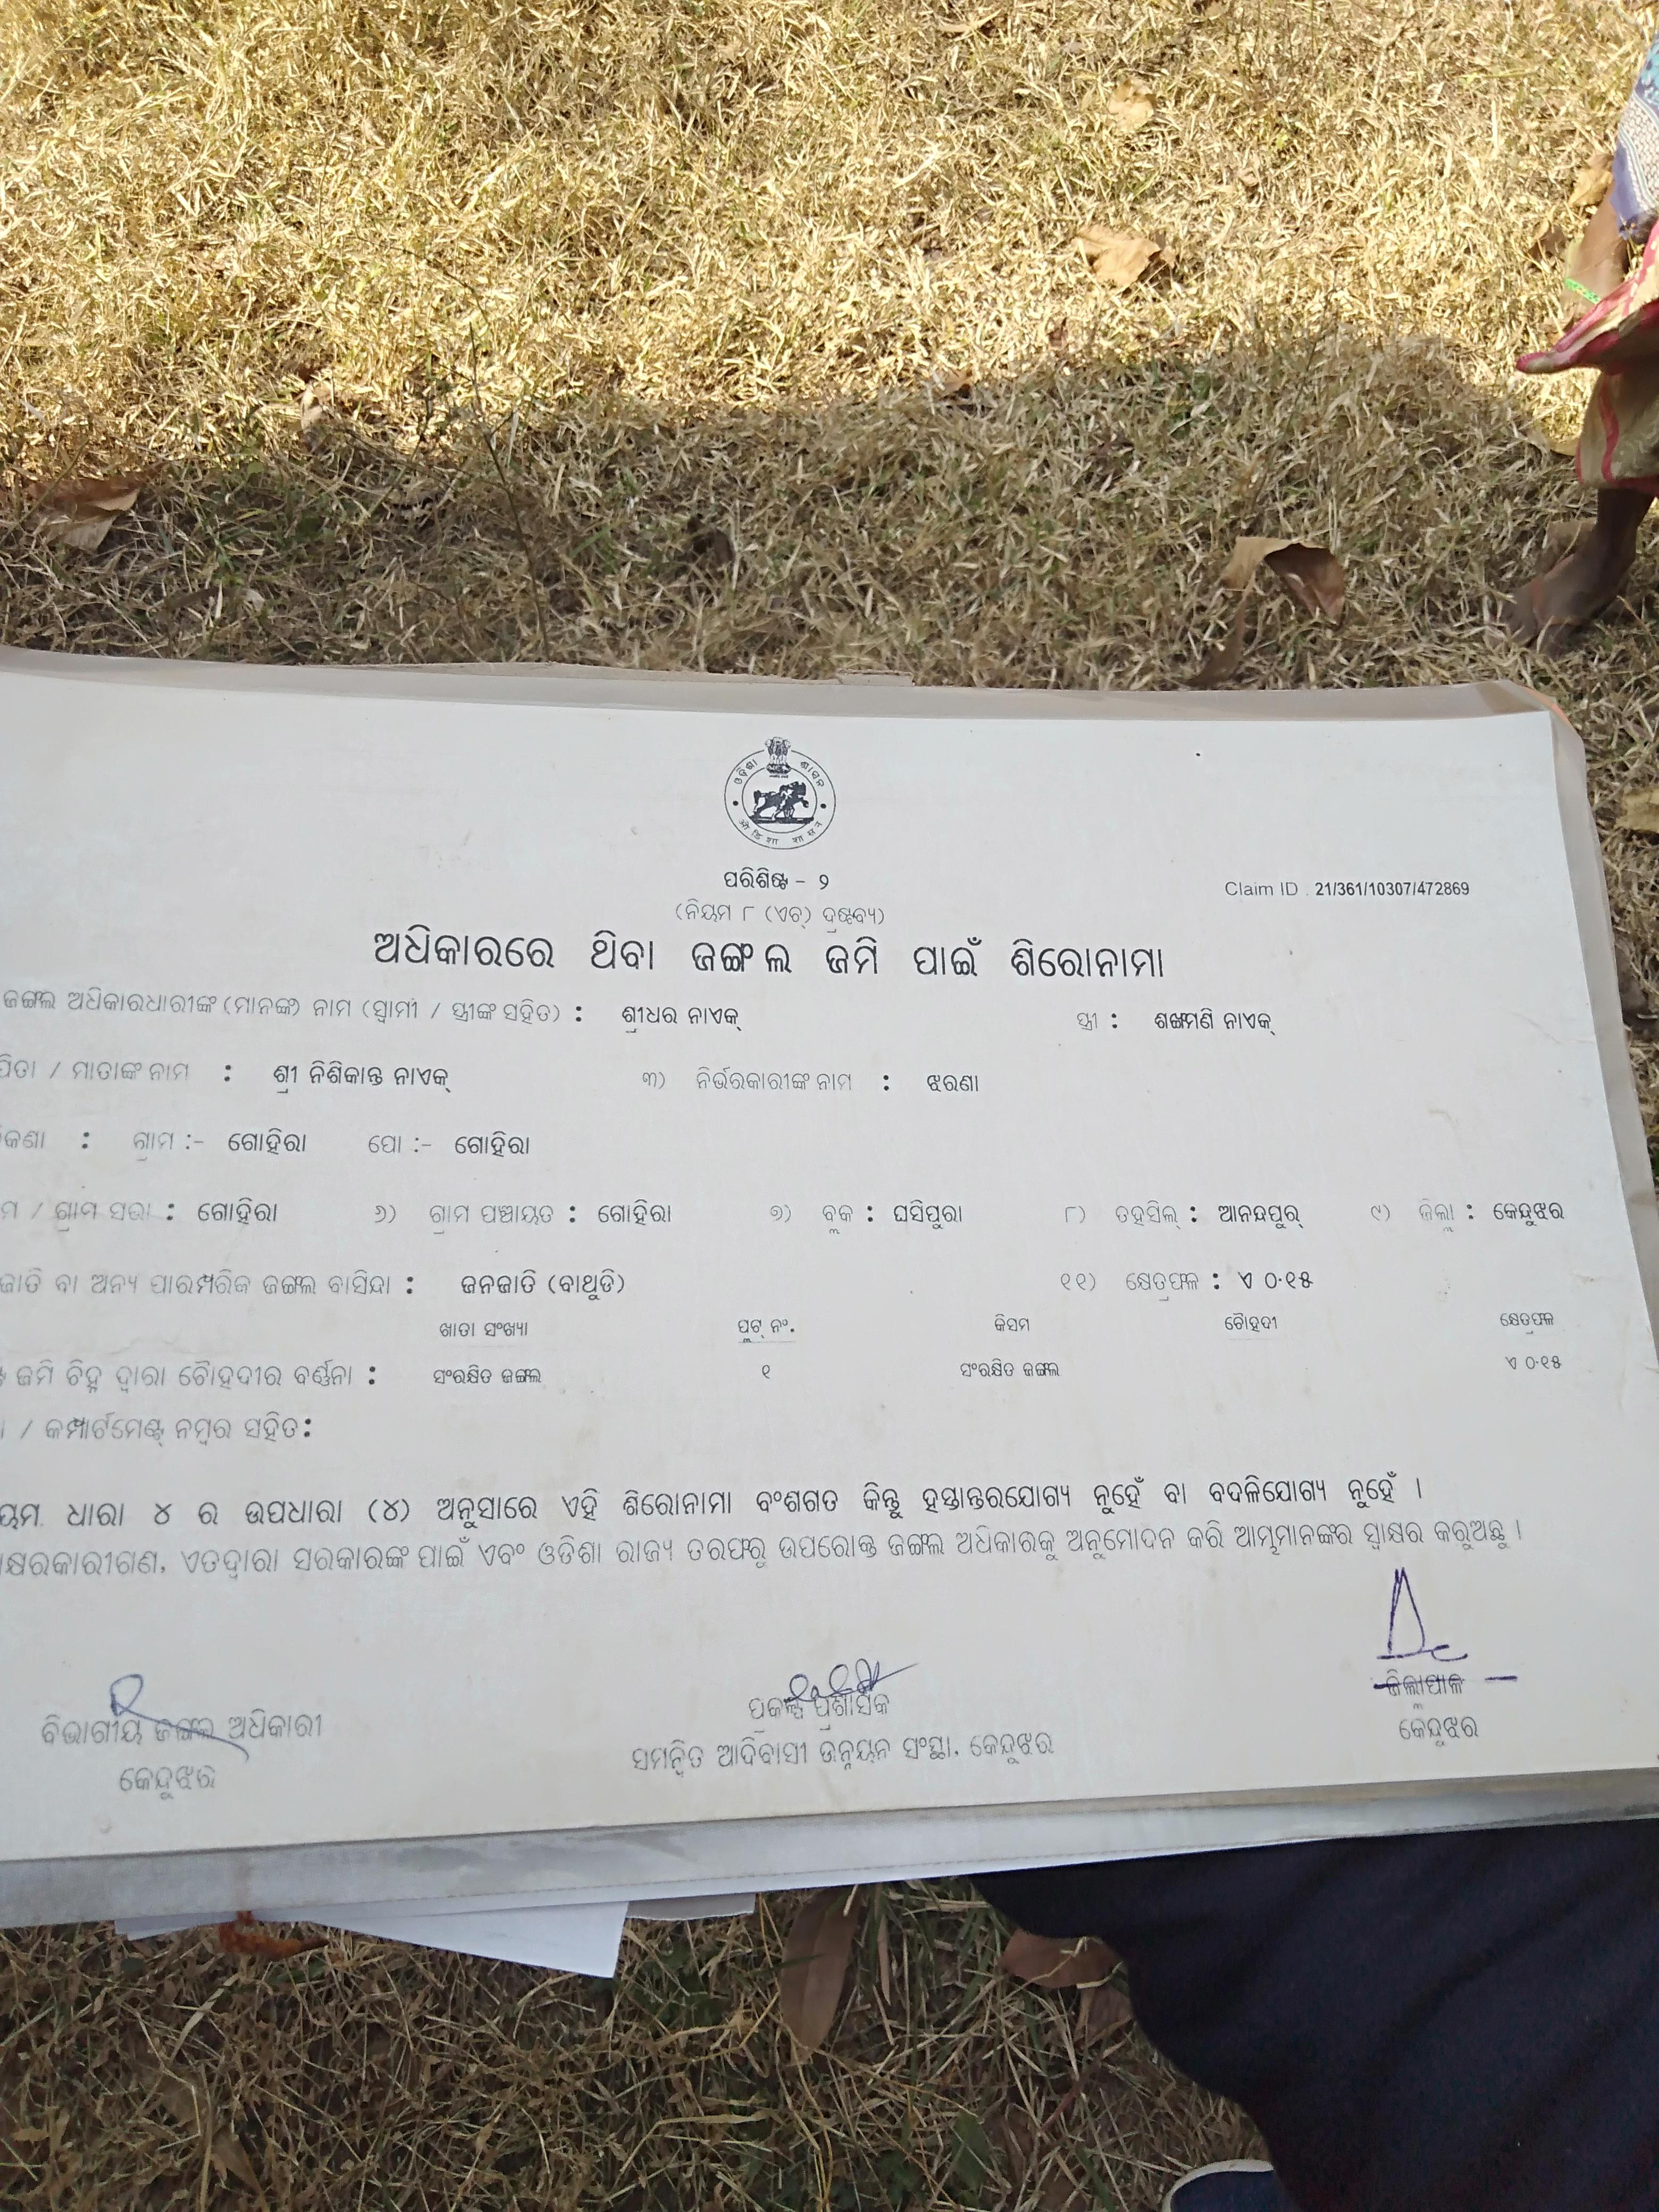 ଓଡ଼ିଶା ଶାସନ
ओडिशा शासन
ପରିଶିଷ୍ଟ - ୨
Claim ID . 21/361/10307/472869
(ନିୟମ ୮ (ଏଚ୍) ଦ୍ରଷ୍ଟବ୍ୟ)
ଅଧିକାରରେ ଥିବା ଜଙ୍ଗଲ ଜମି ପାଇଁ ଶିରୋନାମା
ଜଙ୍ଗଲ ଅଧିକାରଧାରୀଙ୍କ (ମାନଙ୍କ) ନାମ (ସ୍ଵାମୀ / ସ୍ତ୍ରୀଙ୍କ ସହିତ) : ଶ୍ରୀଧର ନାଏକ୍ ସ୍ତ୍ରୀ : ଶଙ୍ଖମଣି ନାଏକ୍
ପିତା / ମାତାଙ୍କ ନାମ : ଶ୍ରୀ ନିଶିକାନ୍ତ ନାଏକ୍ ୩) ନିର୍ଭରକାରୀଙ୍କ ନାମ : ଝରଣା
: ଗ୍ରାମ :- ଗୋହିରା ପୋ :- ଗୋହିରା
/ ଗ୍ରାମ ସଭା : ଗୋହିରା ୬) ଗ୍ରାମ ପଞ୍ଚାୟତ : ଗୋହିରା ୭) ବ୍ଲକ : ଘସିପୁରା ୮) ତହସିଲ୍ : ଆନନ୍ଦପୁର୍ ୯) ଜିଲ୍ଲା : କେନ୍ଦୁଝର
ଜାତି ବା ଅନ୍ୟ ପାରମ୍ପରିକ ଜଙ୍ଗଲ ବାସିନ୍ଦା : ଜନଜାତି (ବାଥୁଡି) ୧୧) କ୍ଷେତ୍ରଫଳ : ଏ ୦.୧୫
ଖାତା ସଂଖ୍ୟା ପ୍ଲଟ୍ ନଂ. କିସମ ଚୌହଦୀ କ୍ଷେତ୍ରଫଳ
ଜମି ଚିହ୍ନ ଦ୍ଵାରା ଚୌହଦୀର ବର୍ଣ୍ଣନା : ସଂରକ୍ଷିତ ଜଙ୍ଗଲ ୧ ସଂରକ୍ଷିତ ଜଙ୍ଗଲ ଏ ୦.୧୫
/ କମ୍ପାର୍ଟମେଣ୍ଟ ନମ୍ବର ସହିତ:
ଧାରା ୪ ର ଉପଧାରା (୪) ଅନୁସାରେ ଏହି ଶିରୋନାମା ବଂଶଗତ କିନ୍ତୁ ହସ୍ତାନ୍ତରଯୋଗ୍ୟ ନୁହେଁ ବା ବଦଳିଯୋଗ୍ୟ ନୁହେଁ ।
ଏତଦ୍ଵାରା ସରକାରଙ୍କ ପାଇଁ ଏବଂ ଓଡିଶା ରାଜ୍ୟ ତରଫରୁ ଉପରୋକ୍ତ ଜଙ୍ଗଲ ଅଧିକାରକୁ ଅନୁମୋଦନ କରି ଆମ୍ଭମାନଙ୍କର ସ୍ଵାକ୍ଷର କରୁଅଛୁ ।
ବିଭାଗୀୟ ଜଙ୍ଗଲ ଅଧିକାରୀ
କେନ୍ଦୁଝର
ପ୍ରକଳ୍ପ ପ୍ରଶାସକ
ସମନ୍ଵିତ ଆଦିବାସୀ ଉନ୍ନୟନ ସଂସ୍ଥା, କେନ୍ଦୁଝର
ଜିଲ୍ଲାପାଳ
କେନ୍ଦୁଝର